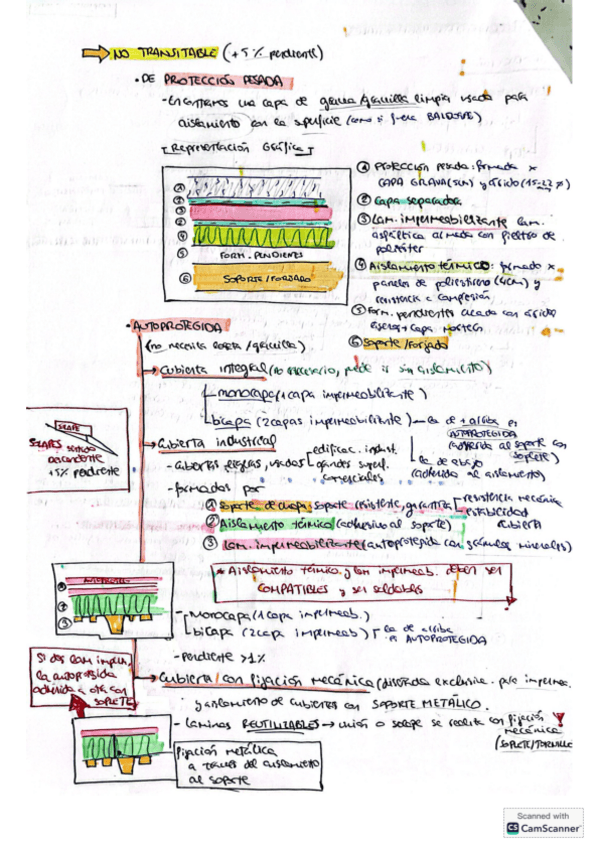 NO TRANSITABLE (+5% pendiente)
· DE PROTECCIÓN PESADA
- Encontramos una capa de grava/gravilla limpia usada para
aislamiento con la superficie (como si fuera BALDOSA)
[Representación Gráfica]
① PROTECCIÓN pesada: formada x
CAPA GRAVA (5cm) y árido (15-22 %)
② Capa separadora
③ Lam. impermeabilizante lam.
asfáltica armada con fieltro de
poliéster
④ Aislamiento térmico: formado x
paneles de poliestireno (4cm) y
resistencia a compresión
⑤ Form. pendientes creada con árido
+ capa mortero
⑥ Soporte/Forjado
①
②
③
④
⑤ FORM. PENDIENTES
⑥ SOPORTE/FORJADO
· AUTOPROTEGIDA
(no necesita loseta/gravilla)
→ Cubierta integral (no necesario, puede ir sin aislamiento)
- monocapa (1 capa impermeabilizante)
- bicapa (2 capas impermeabilizante) - la de arriba es
AUTOPROTEGIDA
(adherida al soporte con
soplete)
la de abajo
(adherida al aislamiento)
SOLAPE
SOLAPES sentido
descendente
+5% pendiente
→ Cubierta industrial
- cubiertas ligeras, usadas edificac. indust.
grandes superf.
comerciales
- formadas por
① Soporte de chapa: soporte resistente, garantiza resistencia mecánica
estabilidad
cubierta
② Aislamiento térmico (adhesivo al soporte)
③ Lam. impermeabilizante (autoprotegida con gránulos minerales)
* Aislamiento térmico y lam impermeab. deben ser
COMPATIBLES y ser soldables
AUTOPROTEG.
③
②
①
- Monocapa (1 capa impermeab.)
- bicapa (2 capa impermeab) la de arriba
es AUTOPROTEGIDA
- Pendiente >1%
Si dos lam imperm,
la autoprotegida
adherida a otra con
SOPLETE
→ Cubierta con fijación mecánica (diseñada exclusiva. para impermea.
y aislamiento de cubiertas con SOPORTE METÁLICO.
- láminas REUTILIZABLES → unión o solape se realiza con fijación
mecánica
(SOPLETE/TORNILLO
Fijación metálica
a través del aislamiento
al soporte
Scanned with
CS CamScanner